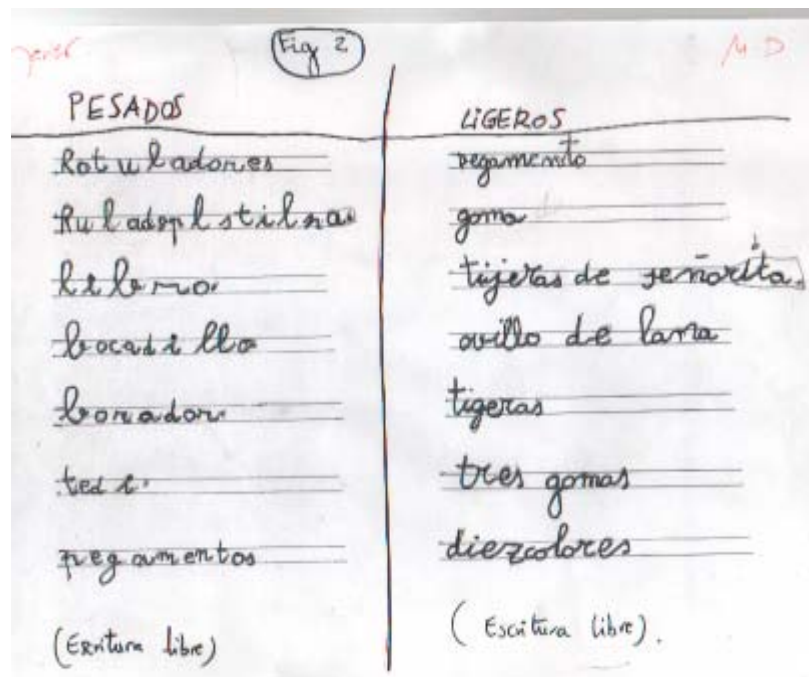 Fig 2
M D
PESADOS
Rotuladores
Ruladeplstilna
libro
bocadillo
borador
pegamentos
(Escritura libre)
LIGEROS
pegamento
goma
tijeras de señorita
ovillo de lana
tigeras
tres gomas
diezcolores
(Escritura libre).